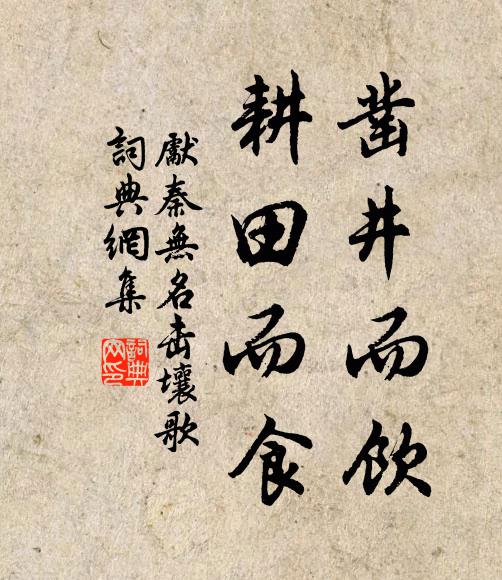 凿井而飲
耕田而食
獻秦無名击壤歌
詞典網集
詞典
网印